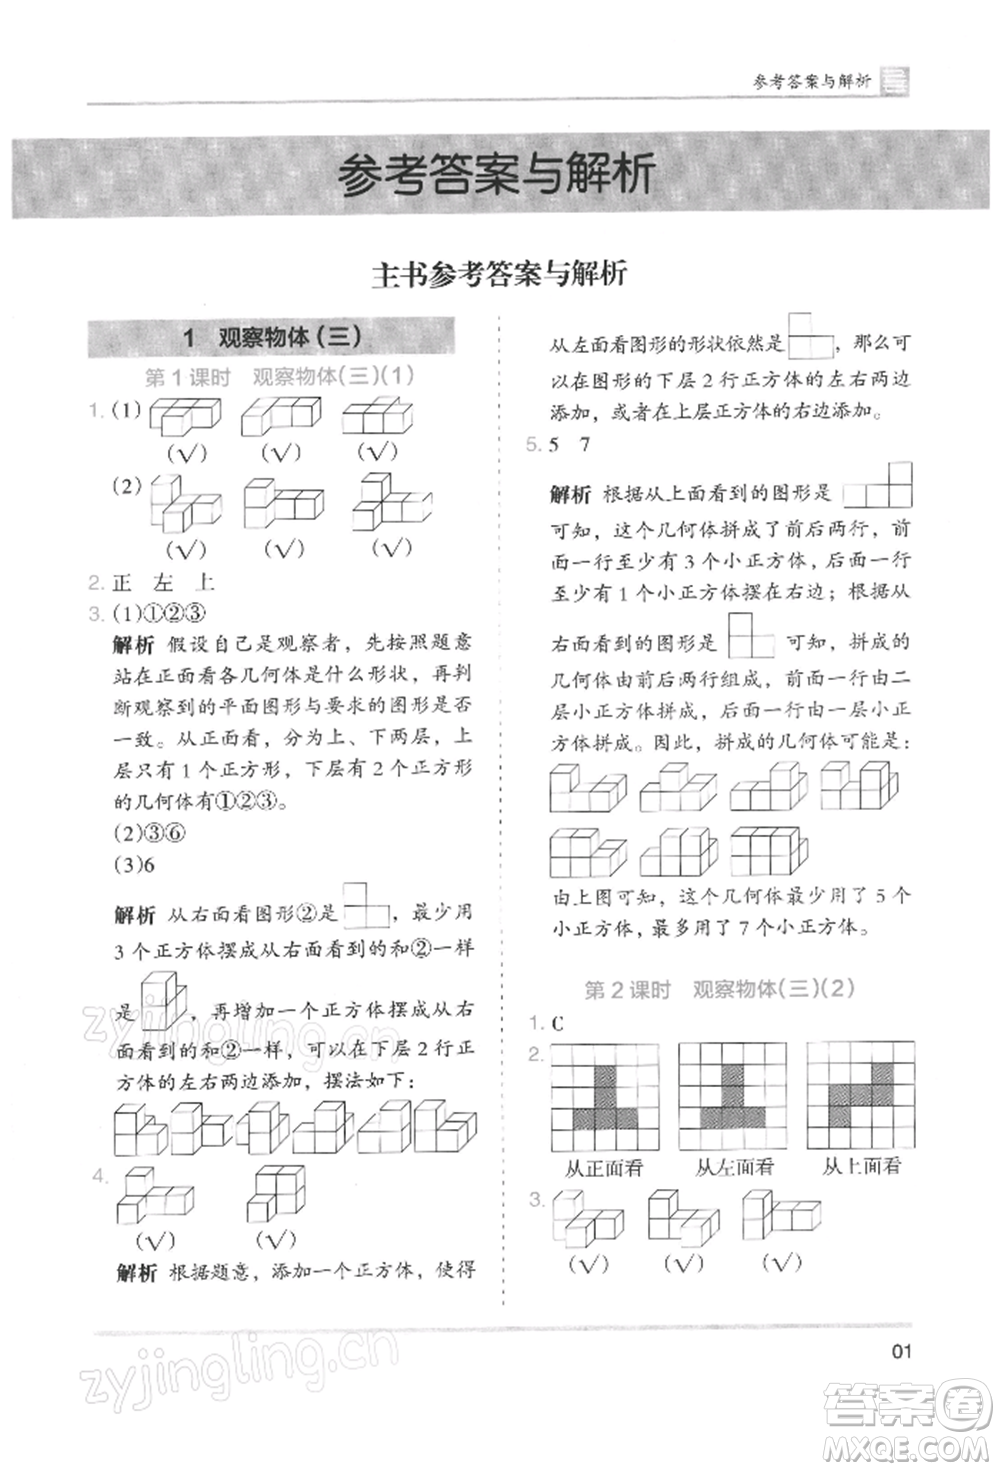 参考答案与解析
参考答案与解析
主书参考答案与解析
1 观察物体(三)
第1课时 观察物体(三)(1)
1. (1)
(√) (√) (√)
(2)
(√) (√) (√)
2. 正 左 上
3. (1)①②③
解析 假设自己是观察者，先按照题意
站在正面看各几何体是什么形状，再判
断观察到的平面图形与要求的图形是否
一致。从正面看，分为上、下两层，上
层只有1个正方形，下层有2个正方形
的几何体有①②③。
(2)③⑥
(3)6
解析 从右面看图形②是 ，最少用
3个正方体摆成从右面看到的和②一样
是 ，再增加一个正方体摆成从右
面看到的和②一样，可以在下层2行正
方体的左右两边添加，摆法如下：
4.
(√) (√)
解析 根据题意，添加一个正方体，使得
从左面看图形的形状依然是 ，那么可
以在图形的下层2行正方体的左右两边
添加，或者在上层正方体的右边添加。
5. 5 7
解析 根据从上面看到的图形是
可知，这个几何体拼成了前后两行，前
面一行至少有3个小正方体，后面一行
至少有1个小正方体摆在右边；根据从
右面看到的图形是 可知，拼成的
几何体由前后两行组成，前面一行由二
层小正方体拼成，后面一行由一层小正
方体拼成。因此，拼成的几何体可能是：
由上图可知，这个几何体最少用了5个
小正方体，最多用了7个小正方体。
第2课时 观察物体(三)(2)
1. C
2.
从正面看 从左面看 从上面看
3.
(√) (√) (√)
01
zyjingling.cn
zyjingling.cn
答案卷
MXQE.COM